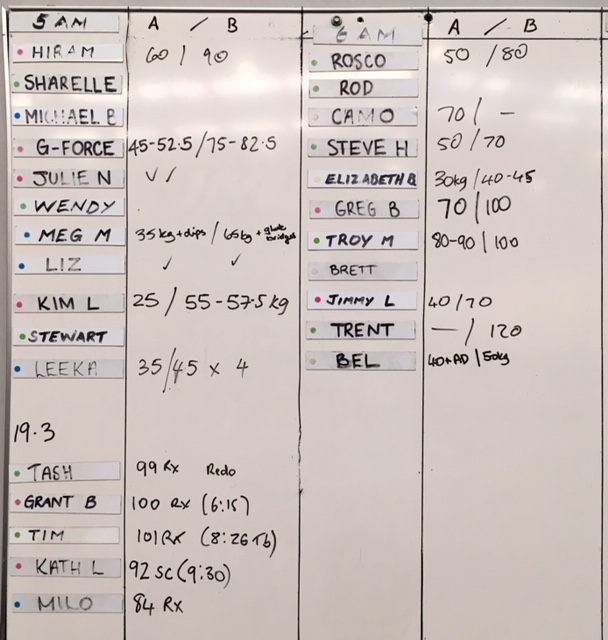 5 AM A / B
HIRAM 60 / 90
SHARELLE
MICHAEL B
G-FORCE 45-52.5/75-82.5
JULIE N ✓ ✓
WENDY
MEG M 35kg+dips / 65kg + glute bridges
LIZ ✓ ✓
KIM L 25 / 55-57.5kg
STEWART
LEEKA 35/45 x 4
19.3
TASH 99 Rx Redo
GRANT B 100 Rx (6:15)
TIM 101 Rx (8:26 Tb)
KATH L 92 SC (9:30)
MILO 84 Rx
6 AM A / B
ROSCO 50 /80
ROD
CAMO 70 / -
STEVE H 50 / 70
ELIZABETH B 30kg /40-45
GREG B 70 | 100
TROY M 80-90 | 100
BRETT
JIMMY L 40/70
TRENT — / 120
BEL 40+AD | 50kg